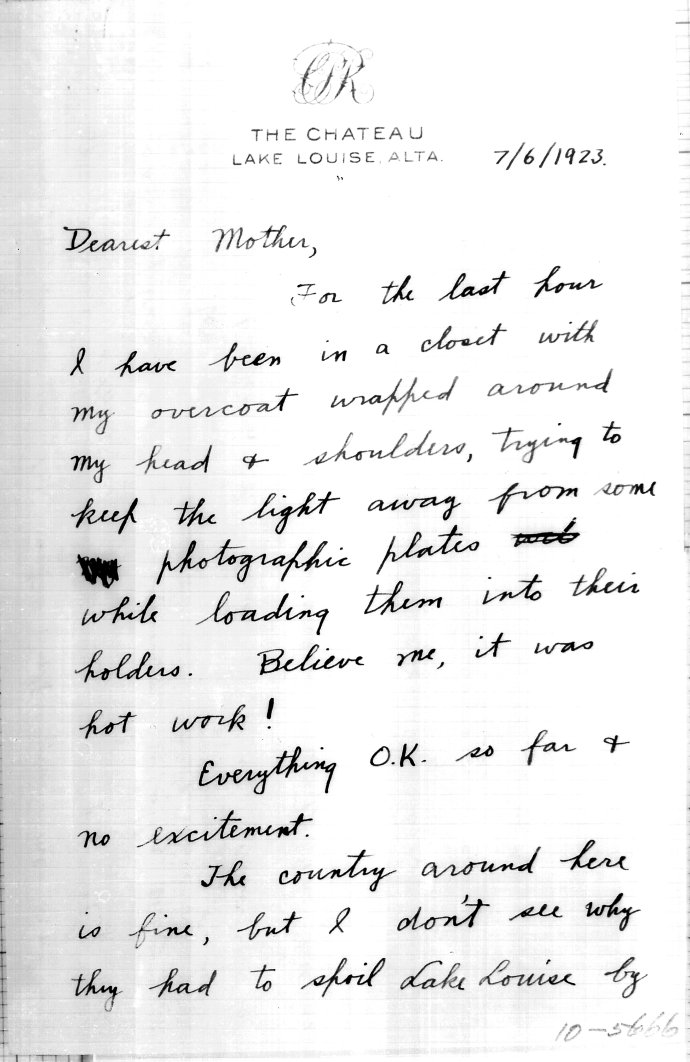 CPR
THE CHATEAU
LAKE LOUISE, ALTA.
7/6/1923.
Dearest Mother,
For the last hour
I have been in a closet with
my overcoat wrapped around
my head & shoulders, trying to
keep the light away from some
photographic plates
while loading them into their
holders. Believe me, it was
hot work!
Everything O.K. so far &
no excitement.
The country around here
is fine, but I don't see why
they had to spoil Lake Louise by
10-5666